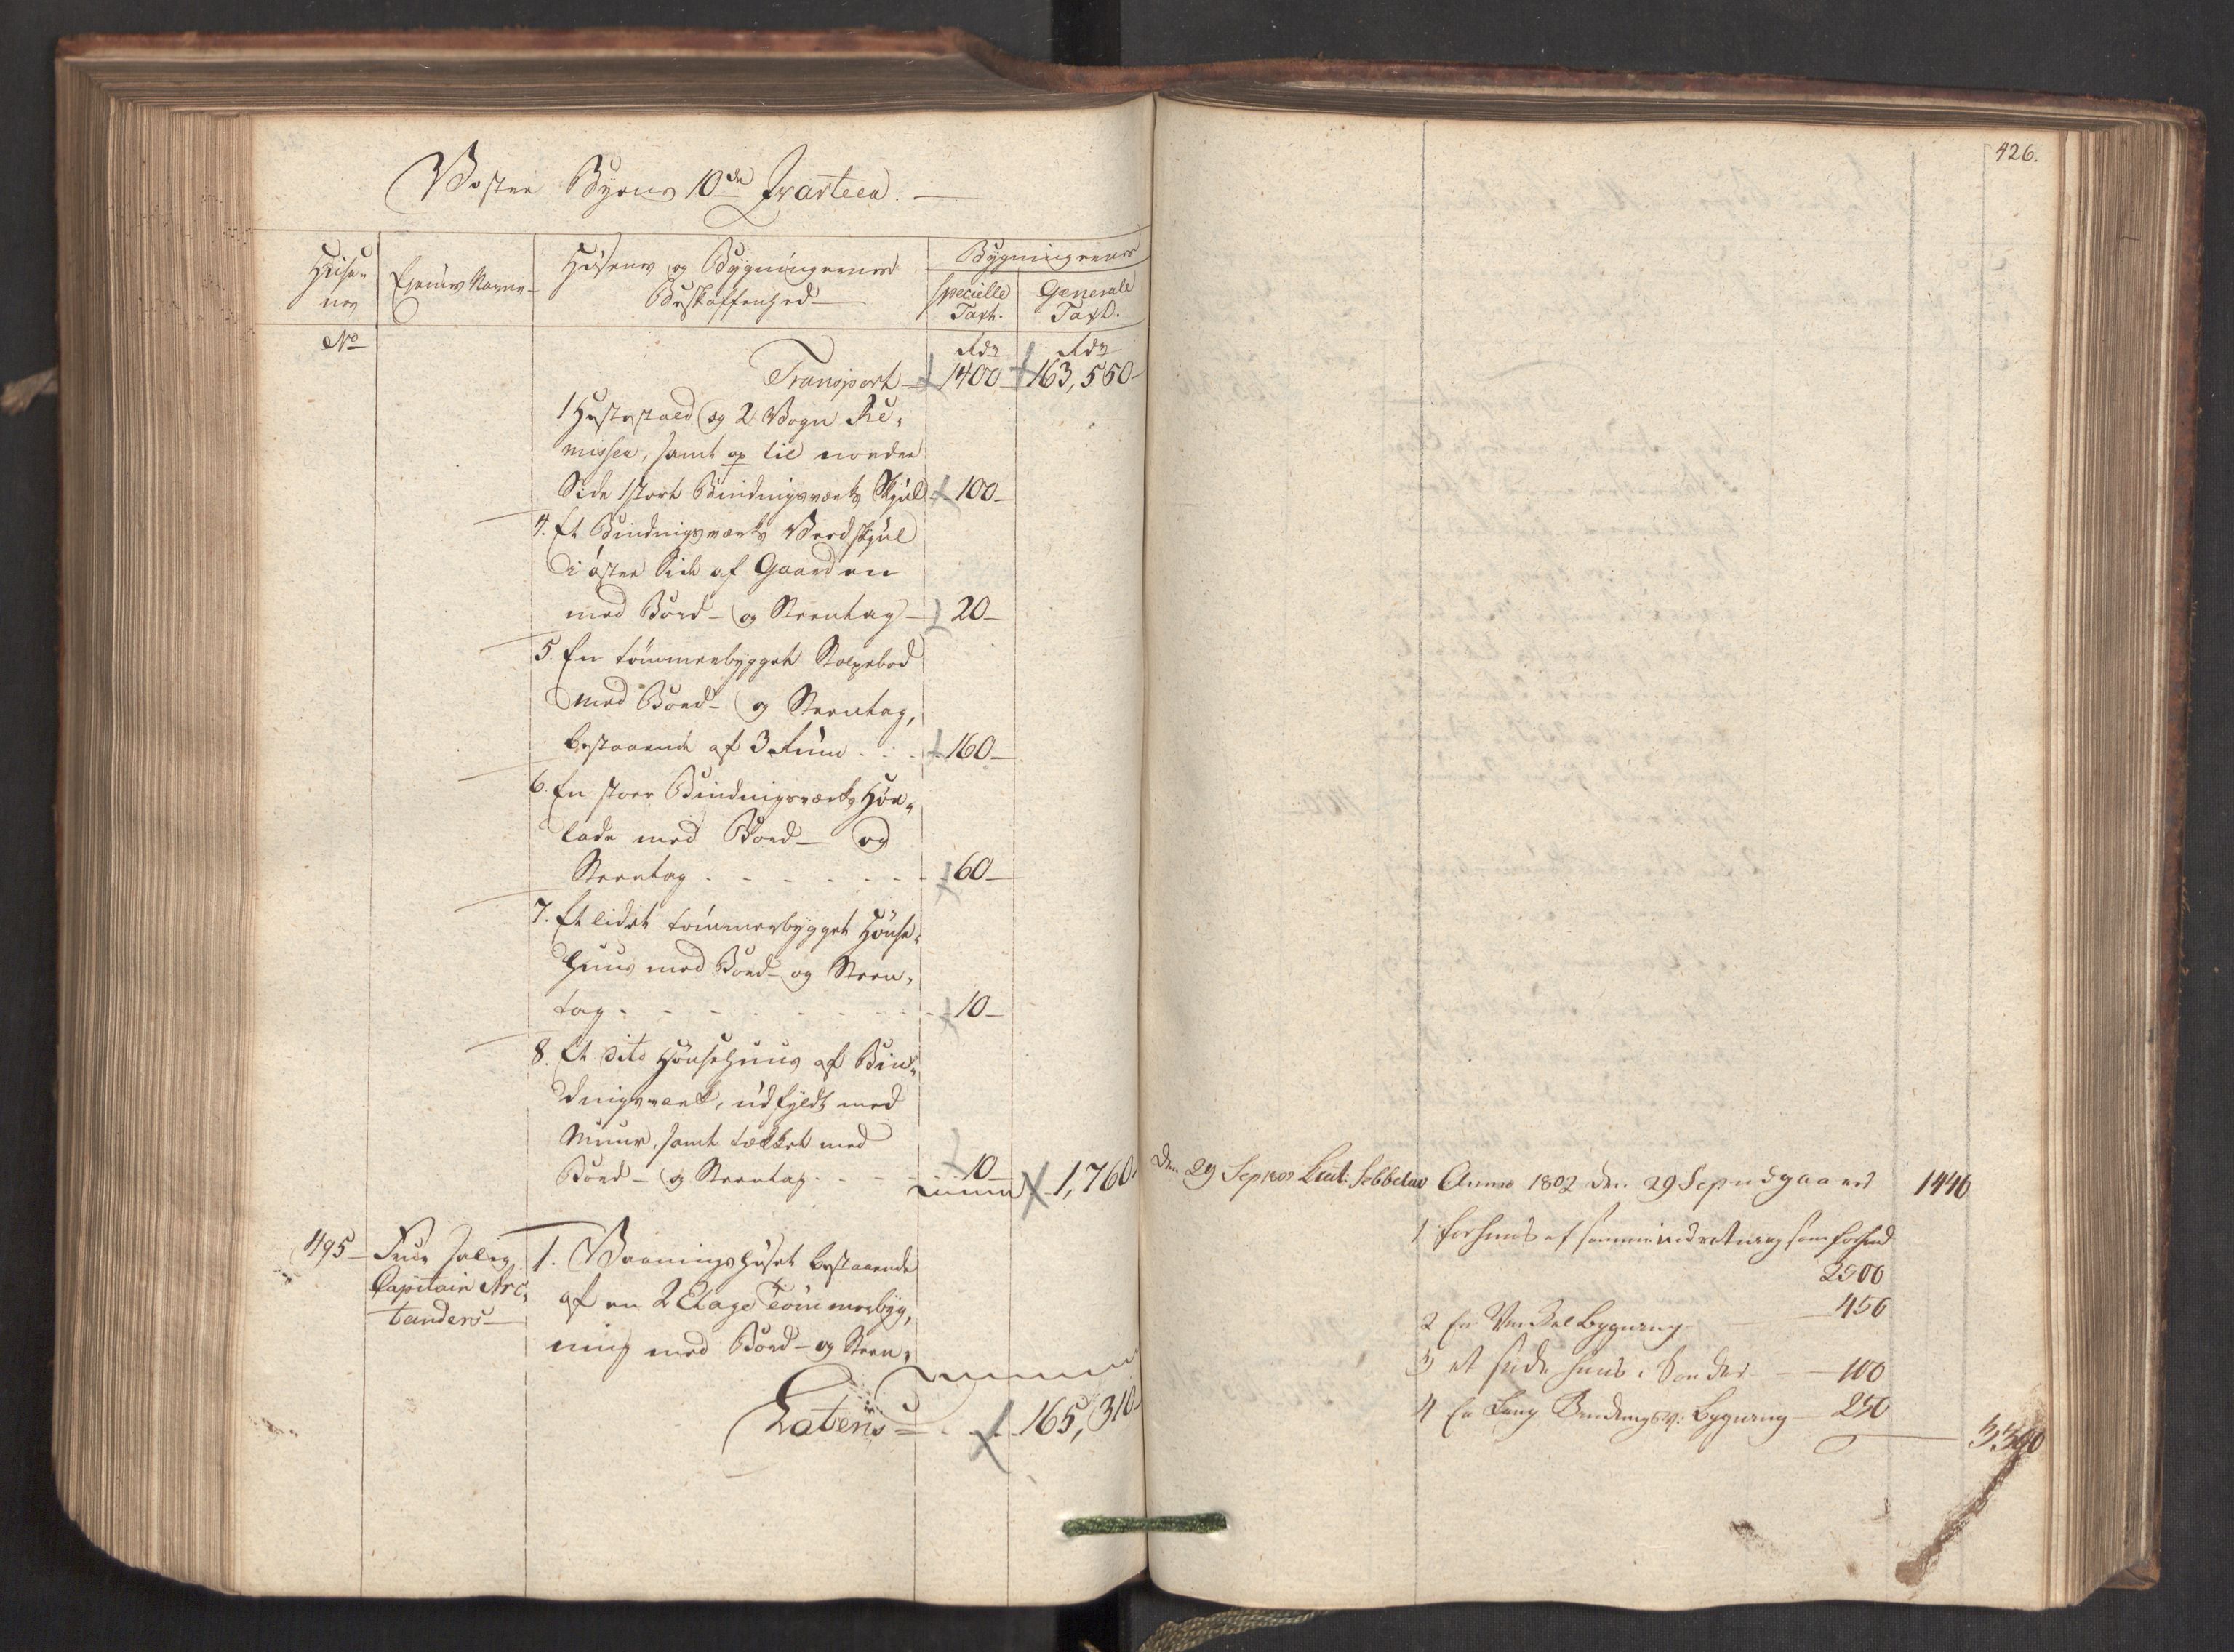 Vester Byens 10de Qvarteer.
Huse-
nes
Ejernes Navne
Husenes og Bygningernes
Beskaffenhed
Bygningernes
specielle
Taxt.
Generale
Taxt.
No
Rdr
Rdr
Transport 1400 163,550
1 Hestestald og 2 Vogn Re-
misser, samt op til norder
Side 1 stort Bindingsværks Skjul 100
4. Et Bindingsværks Vedskjul
i øster Side af Gaarden
med Bord- og Steentag 20
5. En tømmerbygget Stolpebod
med Bord- og Steentag,
bestaaende af 3 Rum 160
6. En stoer Bindingsværks Høe-
lade med Bord- og
Steentag 60
7. Et lidet tømmerbygget Hønse-
huus med Bord- og Steen-
tag 10
8. Et dito Hønsehuus af Bin-
dingsværk, udfyldt med
Muur, samt tækket med
Bord- og Steentag 10 1,760
495 Frue salig
Capitain Arc-
tanders
1. Vaaningshuset bestaaende
af en 2 Etage Tømmerbyg-
ning med Bord- og Steen-
Lateris 165,310
426.
den 29 Sep 1802 Leut: Sebbelau Anno 1802 den 29 Sep udgaaed 1440
1 forhuus af samme indretning som forhed
2500
2 En Vinkel bygning 450
3 et side huus i Sønder 100
4 En Lang Bindingsv: bygning 250
3300